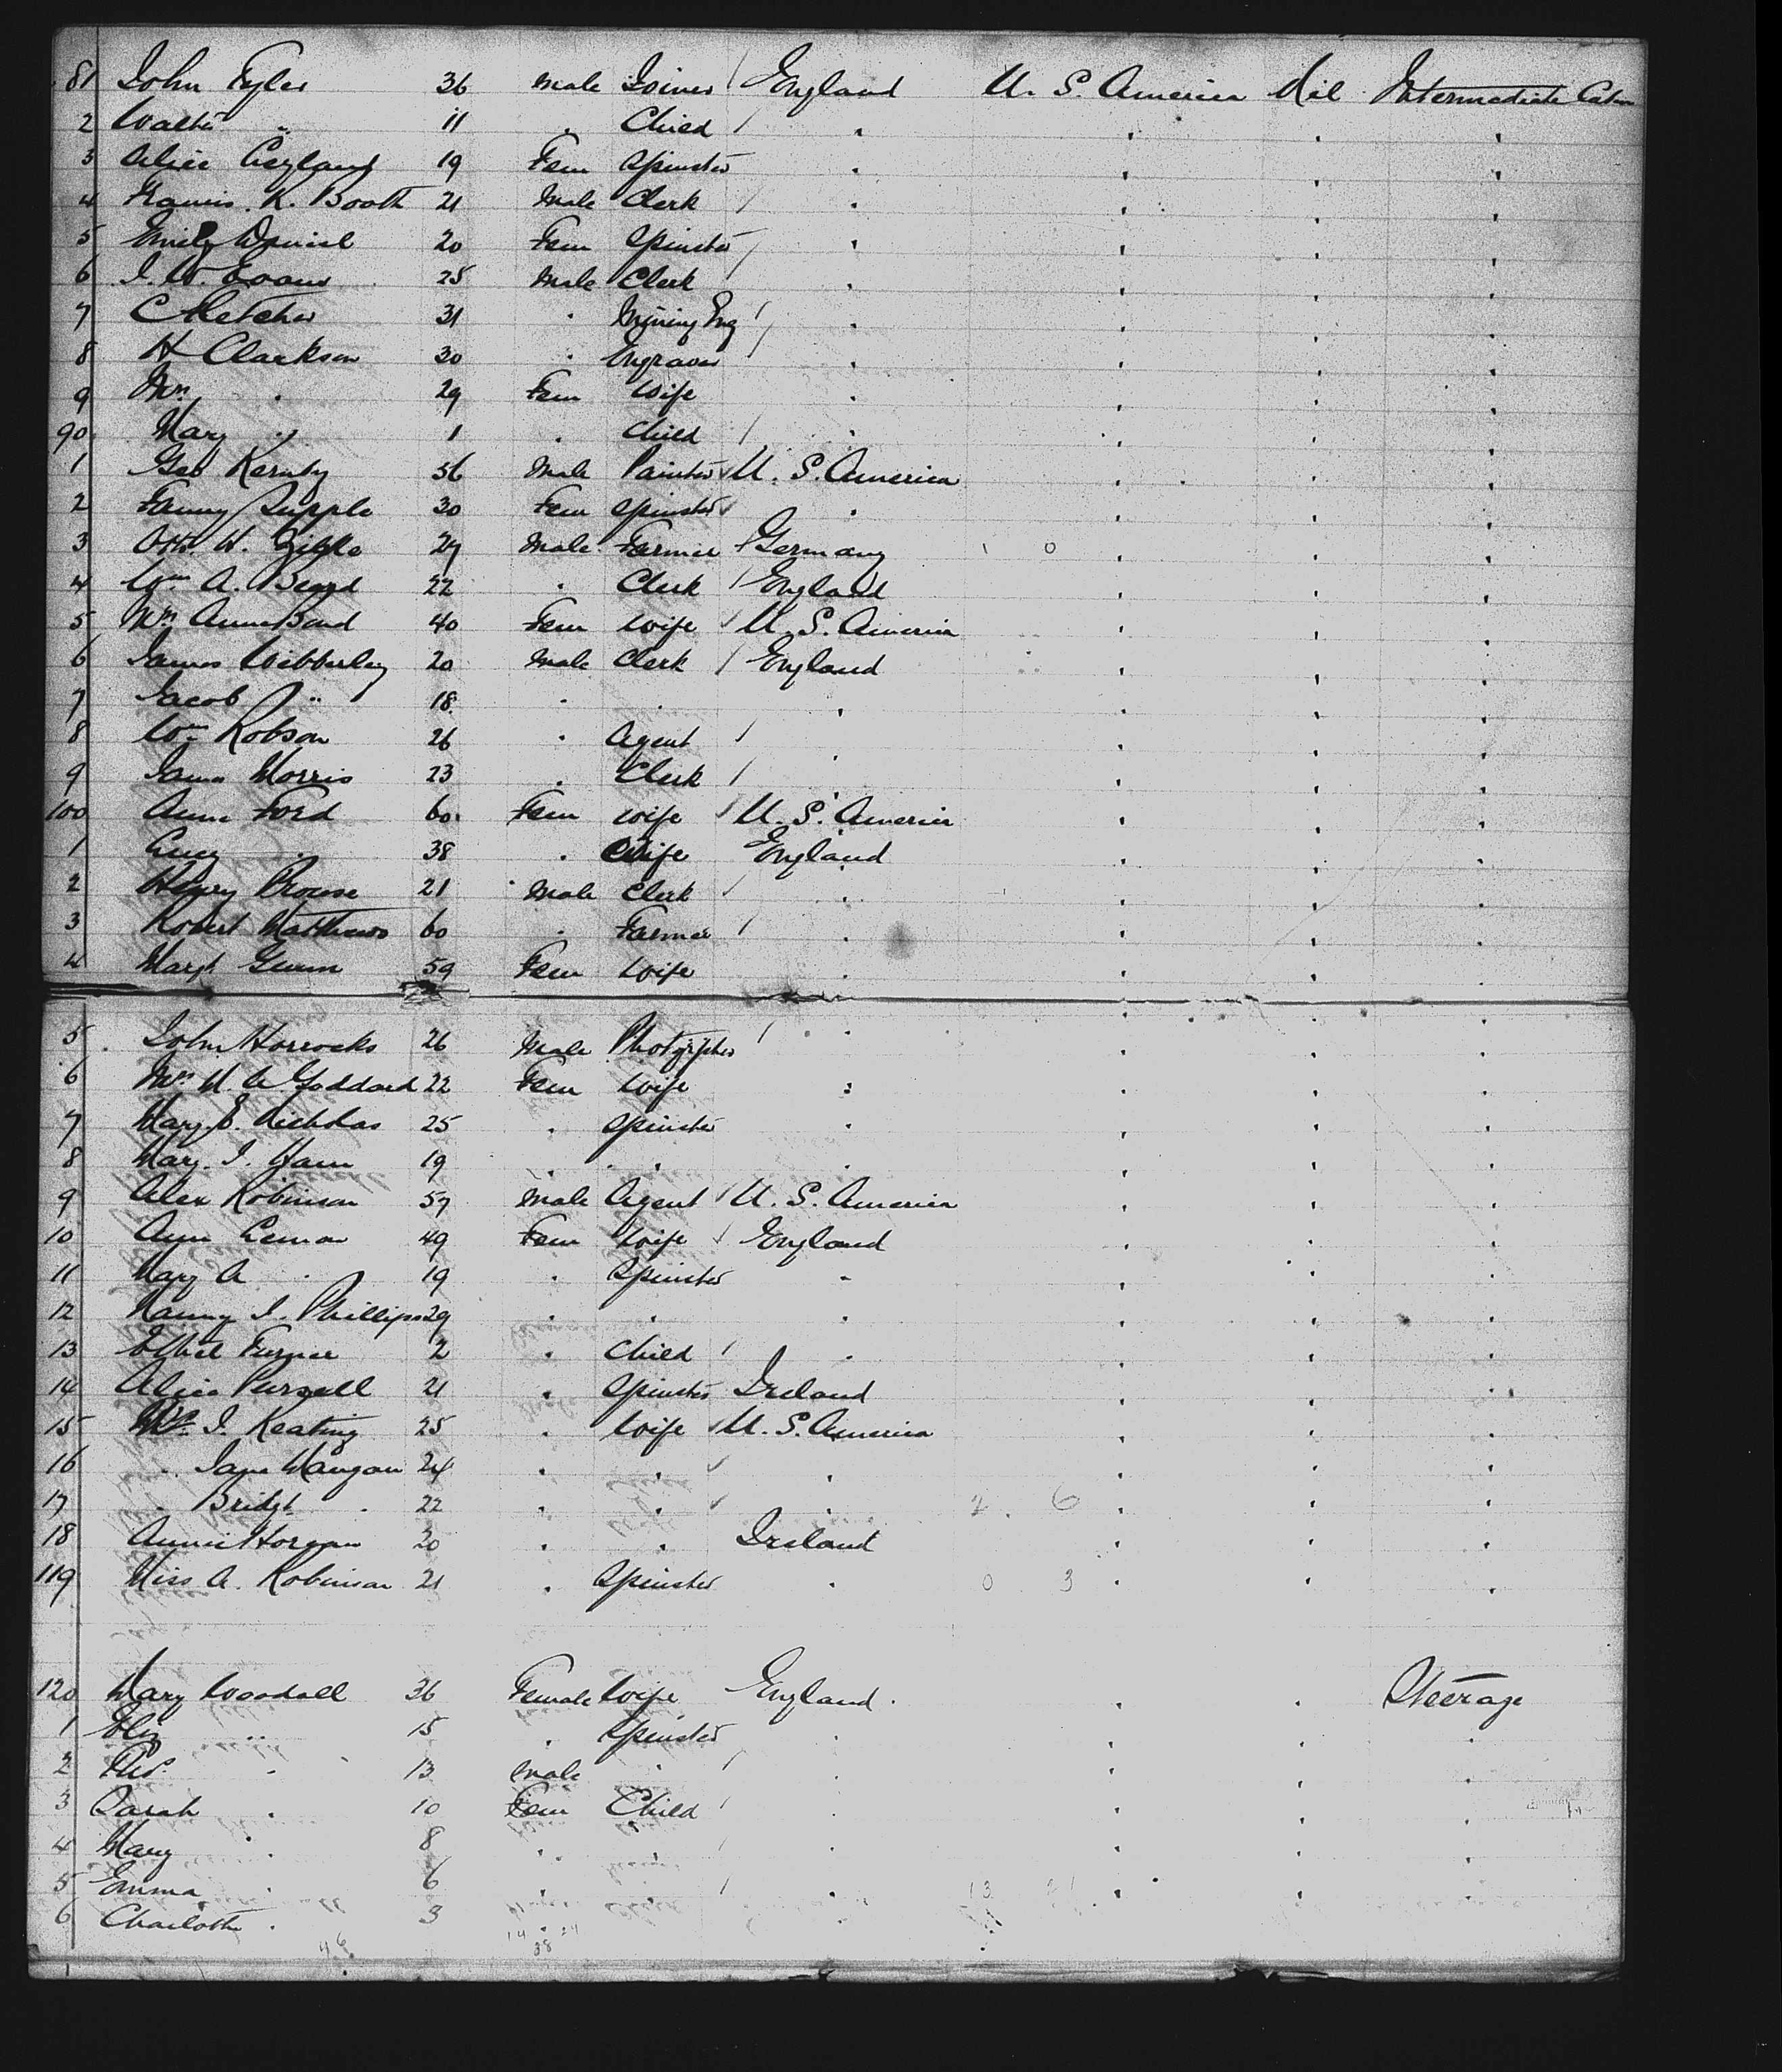 81 John Tyler 36 Male Joiner / England U. S. America Nil Intermediate Cabin
2 Walter " 11 " Child / " " " "
3 Alice 19 Fem Spinster " " " "
4 Francis. K. Booth 21 Male Clerk / " " " "
5 Emily Daniel 20 Fem Spinster / " " " "
6 J. W. Evans 25 Male Clerk / " " " "
7 C Fletcher 31 " Mining Eng / " " " "
8 H Clarkson 30 " Engraver / " " " "
9 Mrs " 29 Fem Wife " " " "
90 Mary " 1 " Child / " " " "
1 Geo 56 Male Painter ✓ U. S. America " " "
2 Fanny Supple 30 Fem Spinster ✓ " " " "
3 Otto. W. 27 Male Farmer Germany " " "
4 Wm A. Beard 22 " Clerk / England " " "
5 Mrs Anne Bond 40 Fem Wife ✓ U. S. America " " "
6 James Wibberley 20 Male Clerk / England " " "
7 Jacob " 18 " " " " " "
8 Wm Robson 26 " Agent / " " " "
9 James Morris 23 " Clerk / " " " "
100 Anne Ford 60 Fem Wife ✓ U. S. America " " "
1 Lucy " 38 " Wife England " " "
2 Henry Prowse 21 Male Clerk / " " " "
3 Robert Matthews 60 " Farmer / " " " "
4 Margt Gwinn 59 Fem Wife " " " "
5 John Horrocks 26 Male Photgrpher / " " " "
6 Mrs W. A. Goddard 22 Fem Wife " " " "
7 Mary. E. Nicholas 25 " Spinster " " " "
8 Mary. J. Ham 19 " " " " " "
9 Alex Robinson 57 Male Agent ✓ U. S. America " " "
10 Ann Leman 49 Fem Wife ✓ England " " "
11 Mary A " 19 " Spinster " " " "
12 Nanny J. Phillips 29 " " " " " "
13 Ethel Turner 2 " Child / " " " "
14 Alice Purzell 21 " Spinster Ireland " " "
15 Mrs J. Keating 25 " Wife ✓ U. S. America " " "
16 " Jane Mangan 24 " " ✓ " " " "
17 " Bridgt " 22 " " ✓ " " " "
18 Annie Horgan 20 " " Ireland " " "
119 Miss A. Robinson 21 " Spinster " " " "
120 Mary Woodall 36 Female Wife England " " Steerage
1 Eliz " 15 " Spinster " " " "
2 " 13 Male " / " " " "
3 Sarah " 10 Fem Child / " " " "
4 Mary " 8 " " / " " " "
5 Emma " 6 " " / " " " "
6 Charlotte " 3 " "